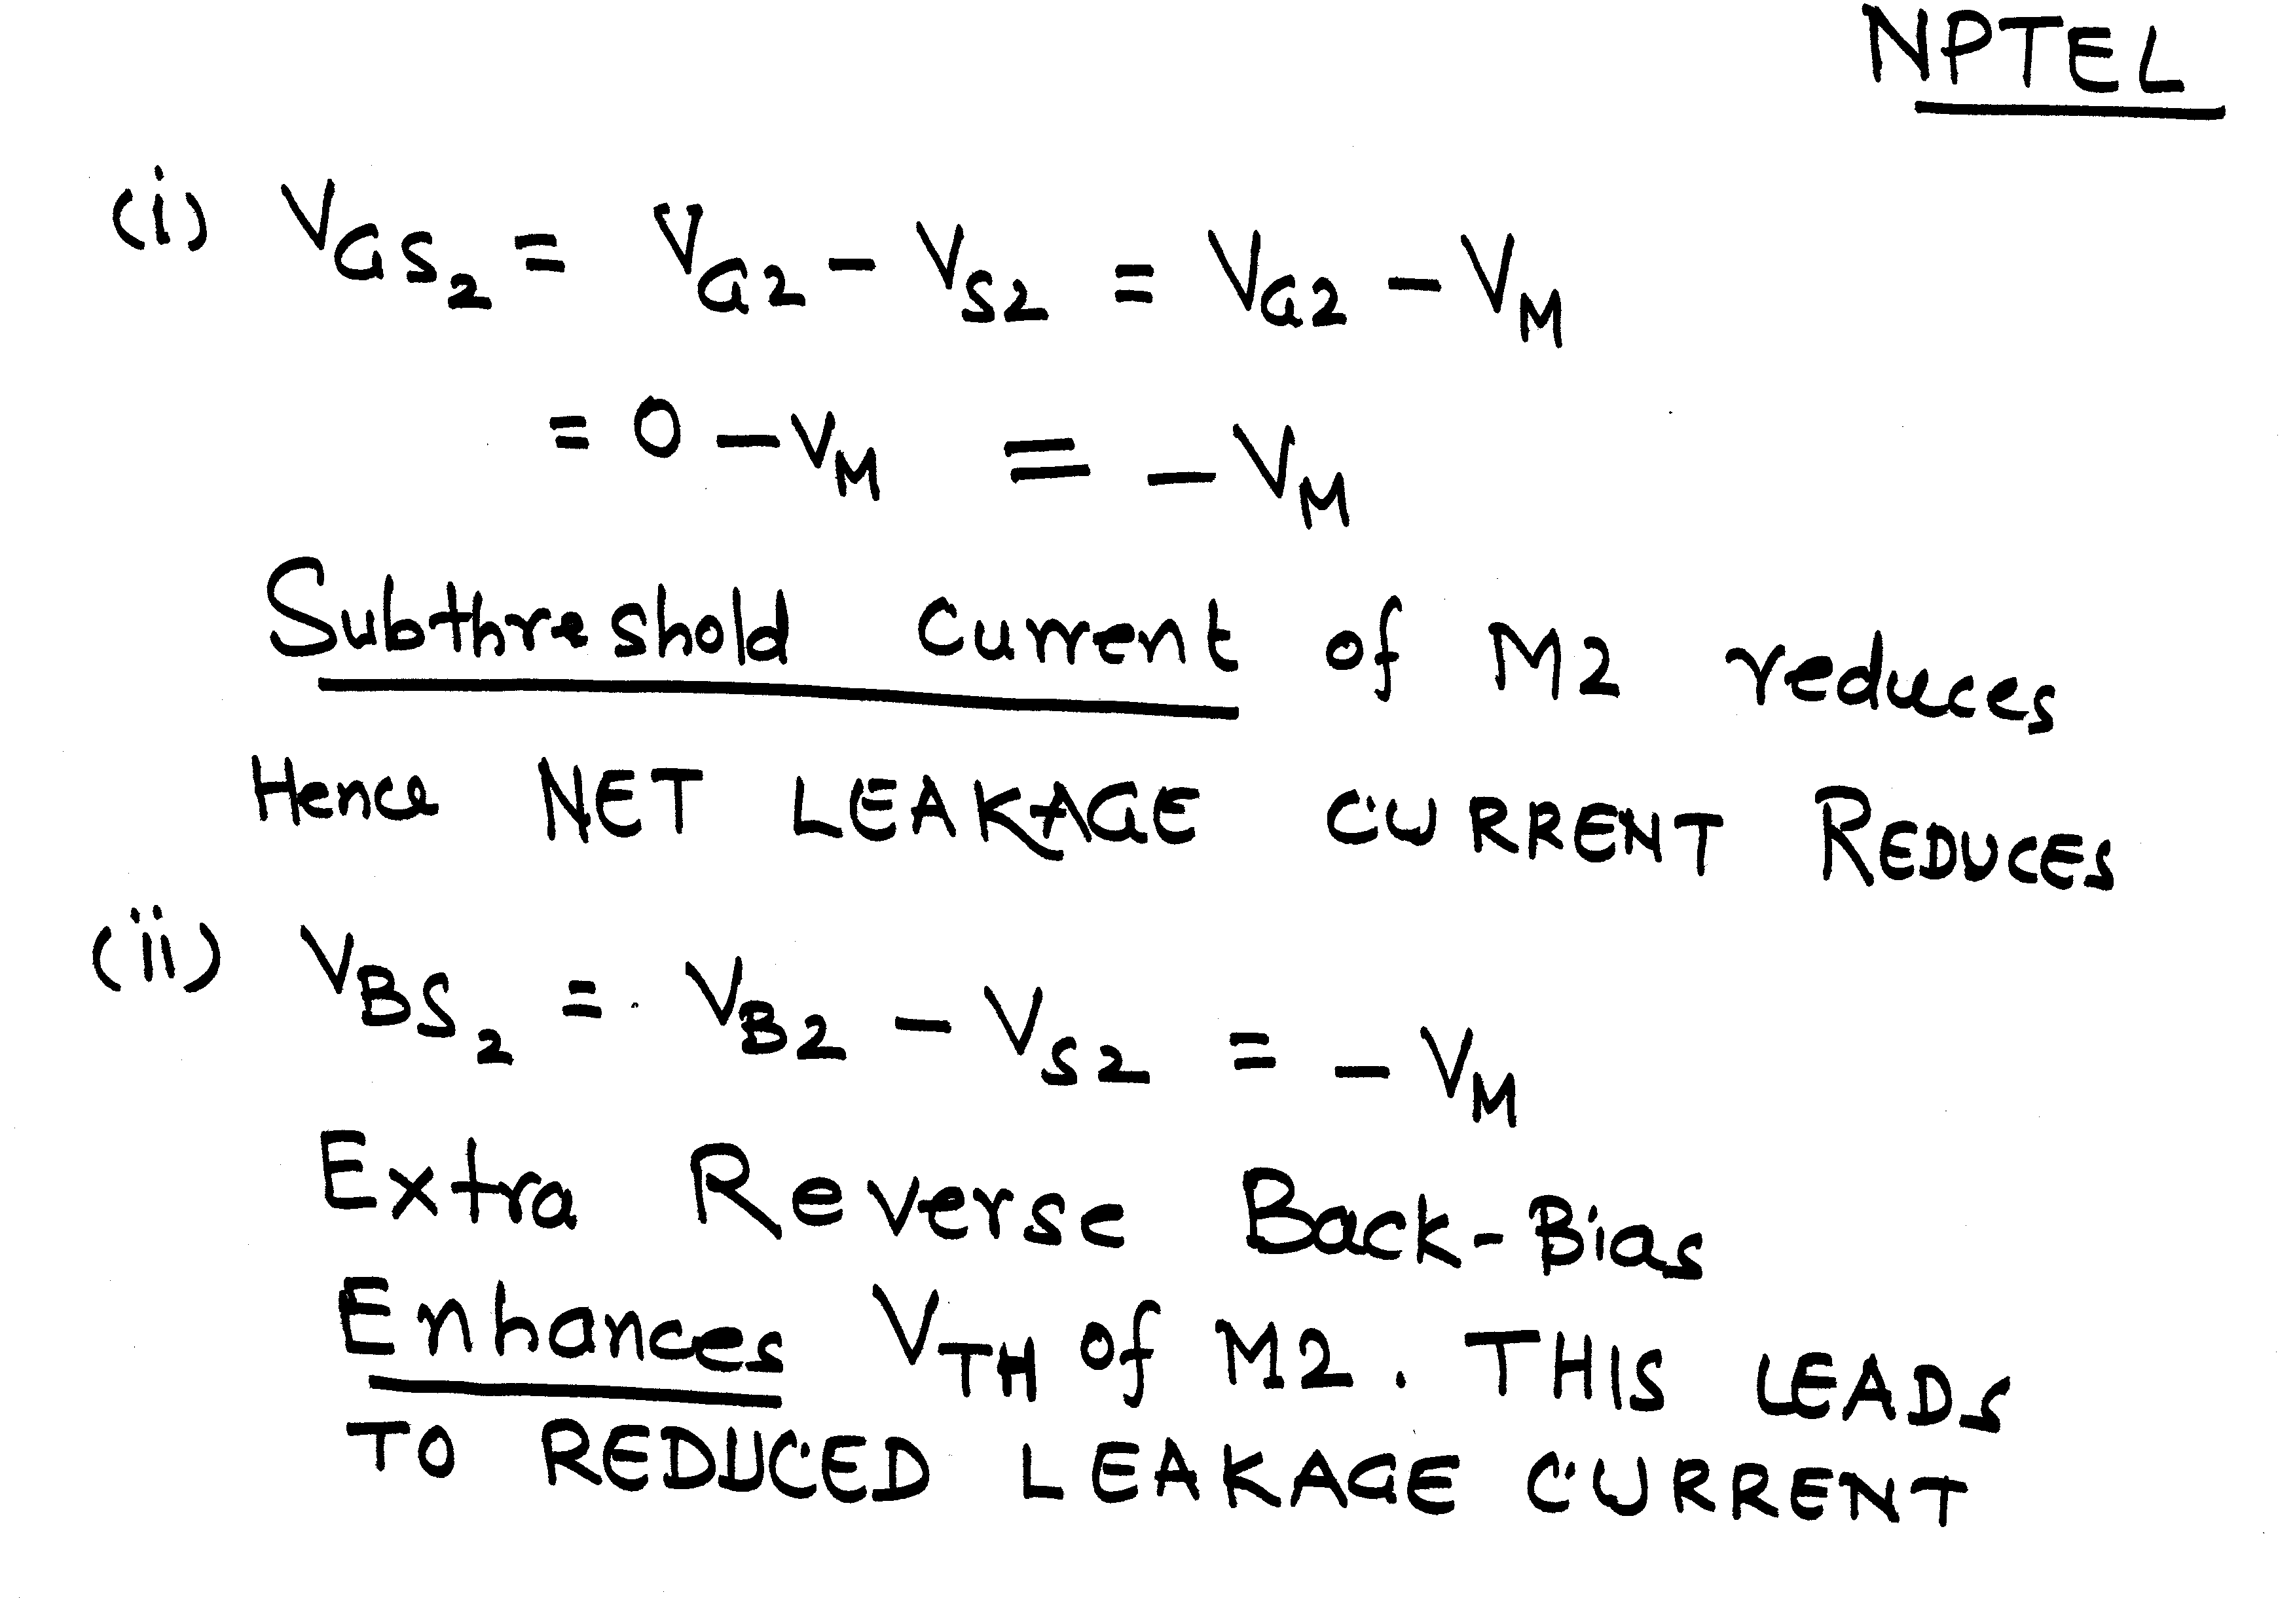 NPTEL
(i) VGS2 = VG2 - VS2 = VG2 - VM
= 0 - VM = - VM
Subthreshold current of M2 reduces
Hence NET LEAKAGE CURRENT REDUCES
(ii) VBS2 = VB2 - VS2 = - VM
Extra Reverse Back-Bias
Enhances VTH of M2. THIS LEADS
TO REDUCED LEAKAGE CURRENT